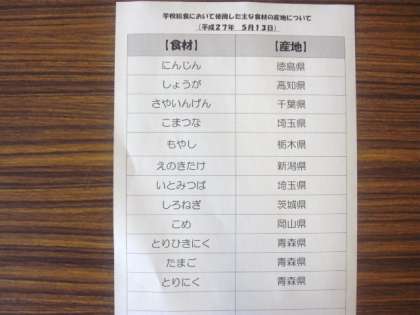 学校給食において使用した主な食材の産地について
（平成27年　5月13日）
【食材】　【産地】
にんじん　徳島県
しょうが　高知県
さやいんげん　千葉県
こまつな　埼玉県
もやし　栃木県
えのきたけ　新潟県
いとみつば　埼玉県
しろねぎ　茨城県
こめ　岡山県
とりひきにく　青森県
たまご　青森県
とりにく　青森県